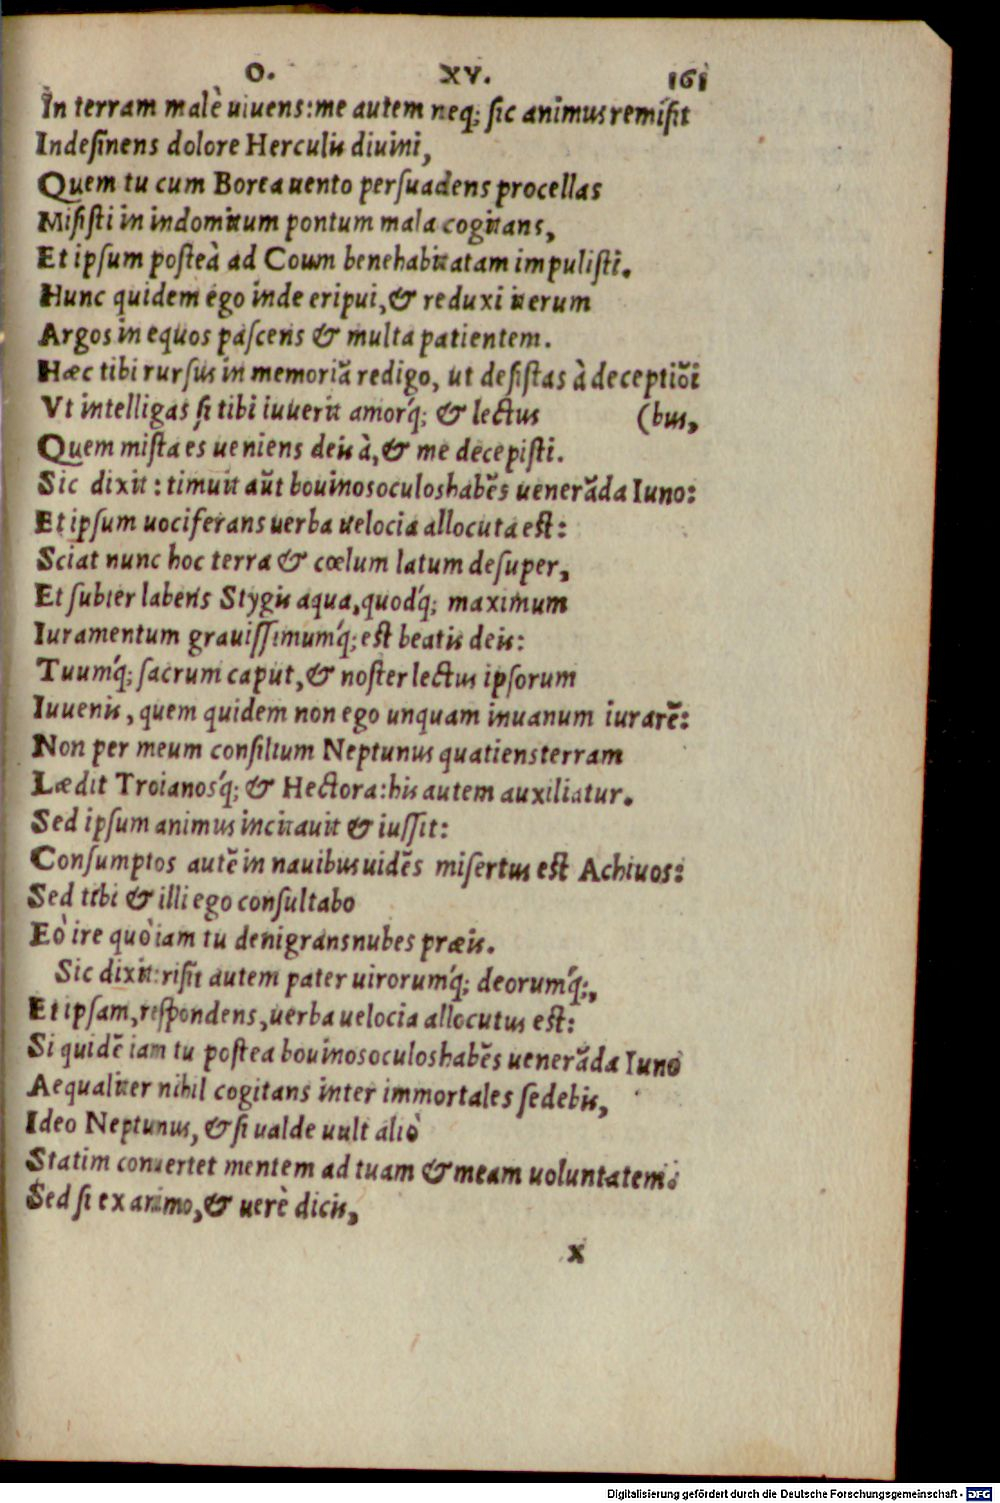 O. XV. 161
In terram malè uiuens: me autem neq; sic animus remisit
Indesinens dolore Herculis diuini,
Quem tu cum Borea uento persuadens procellas
Misisti in indomitum pontum mala cogitans,
Et ipsum posteà ad Coum benehabitatam impulisti.
Hunc quidem ego inde eripui, & reduxi iterum
Argos in equos pascens & multa patientem.
Hæc tibi rursus in memoriā redigo, ut desistas à deceptiōi
Vt intelligas si tibi iuuerit amorq́; & lectus (bus,
Quem mista es ueniens deis à, & me decepisti.
Sic dixit: timuit aūt bouinos oculos habēs uenerāda Iuno:
Et ipsum uociferans uerba uelocia allocuta est:
Sciat nunc hoc terra & cœlum latum desuper,
Et subter labens Stygis aqua, quodq́; maximum
Iuramentum grauissimumq́; est beatis deis:
Tuumq́; sacrum caput, & noster lectus ipsorum
Iuuenis, quem quidem non ego unquam inuanum iurarē:
Non per meum consilium Neptunus quatiens terram
Lædit Troianosq́; & Hectora: his autem auxiliatur.
Sed ipsum animus incitauit & iussit:
Consumptos autē in nauibus uidēs misertus est Achiuos:
Sed tibi & illi ego consultabo
Eò ire quò iam tu denigrans nubes præis.
Sic dixit: risit autem pater uirorumq́; deorumq́;,
Et ipsam, respondens, uerba uelocia allocutus est:
Si quidē iam tu postea bouinos oculos habēs uenerāda Iuno
Aequaliter nihil cogitans inter immortales sedebis,
Ideo Neptunus, & si ualde uult aliò
Statim conuertet mentem ad tuam & meam uoluntatem:
Sed si ex animo, & uerè dicis,
x
Digitalisierung gefördert durch die Deutsche Forschungsgemeinschaft - DFG